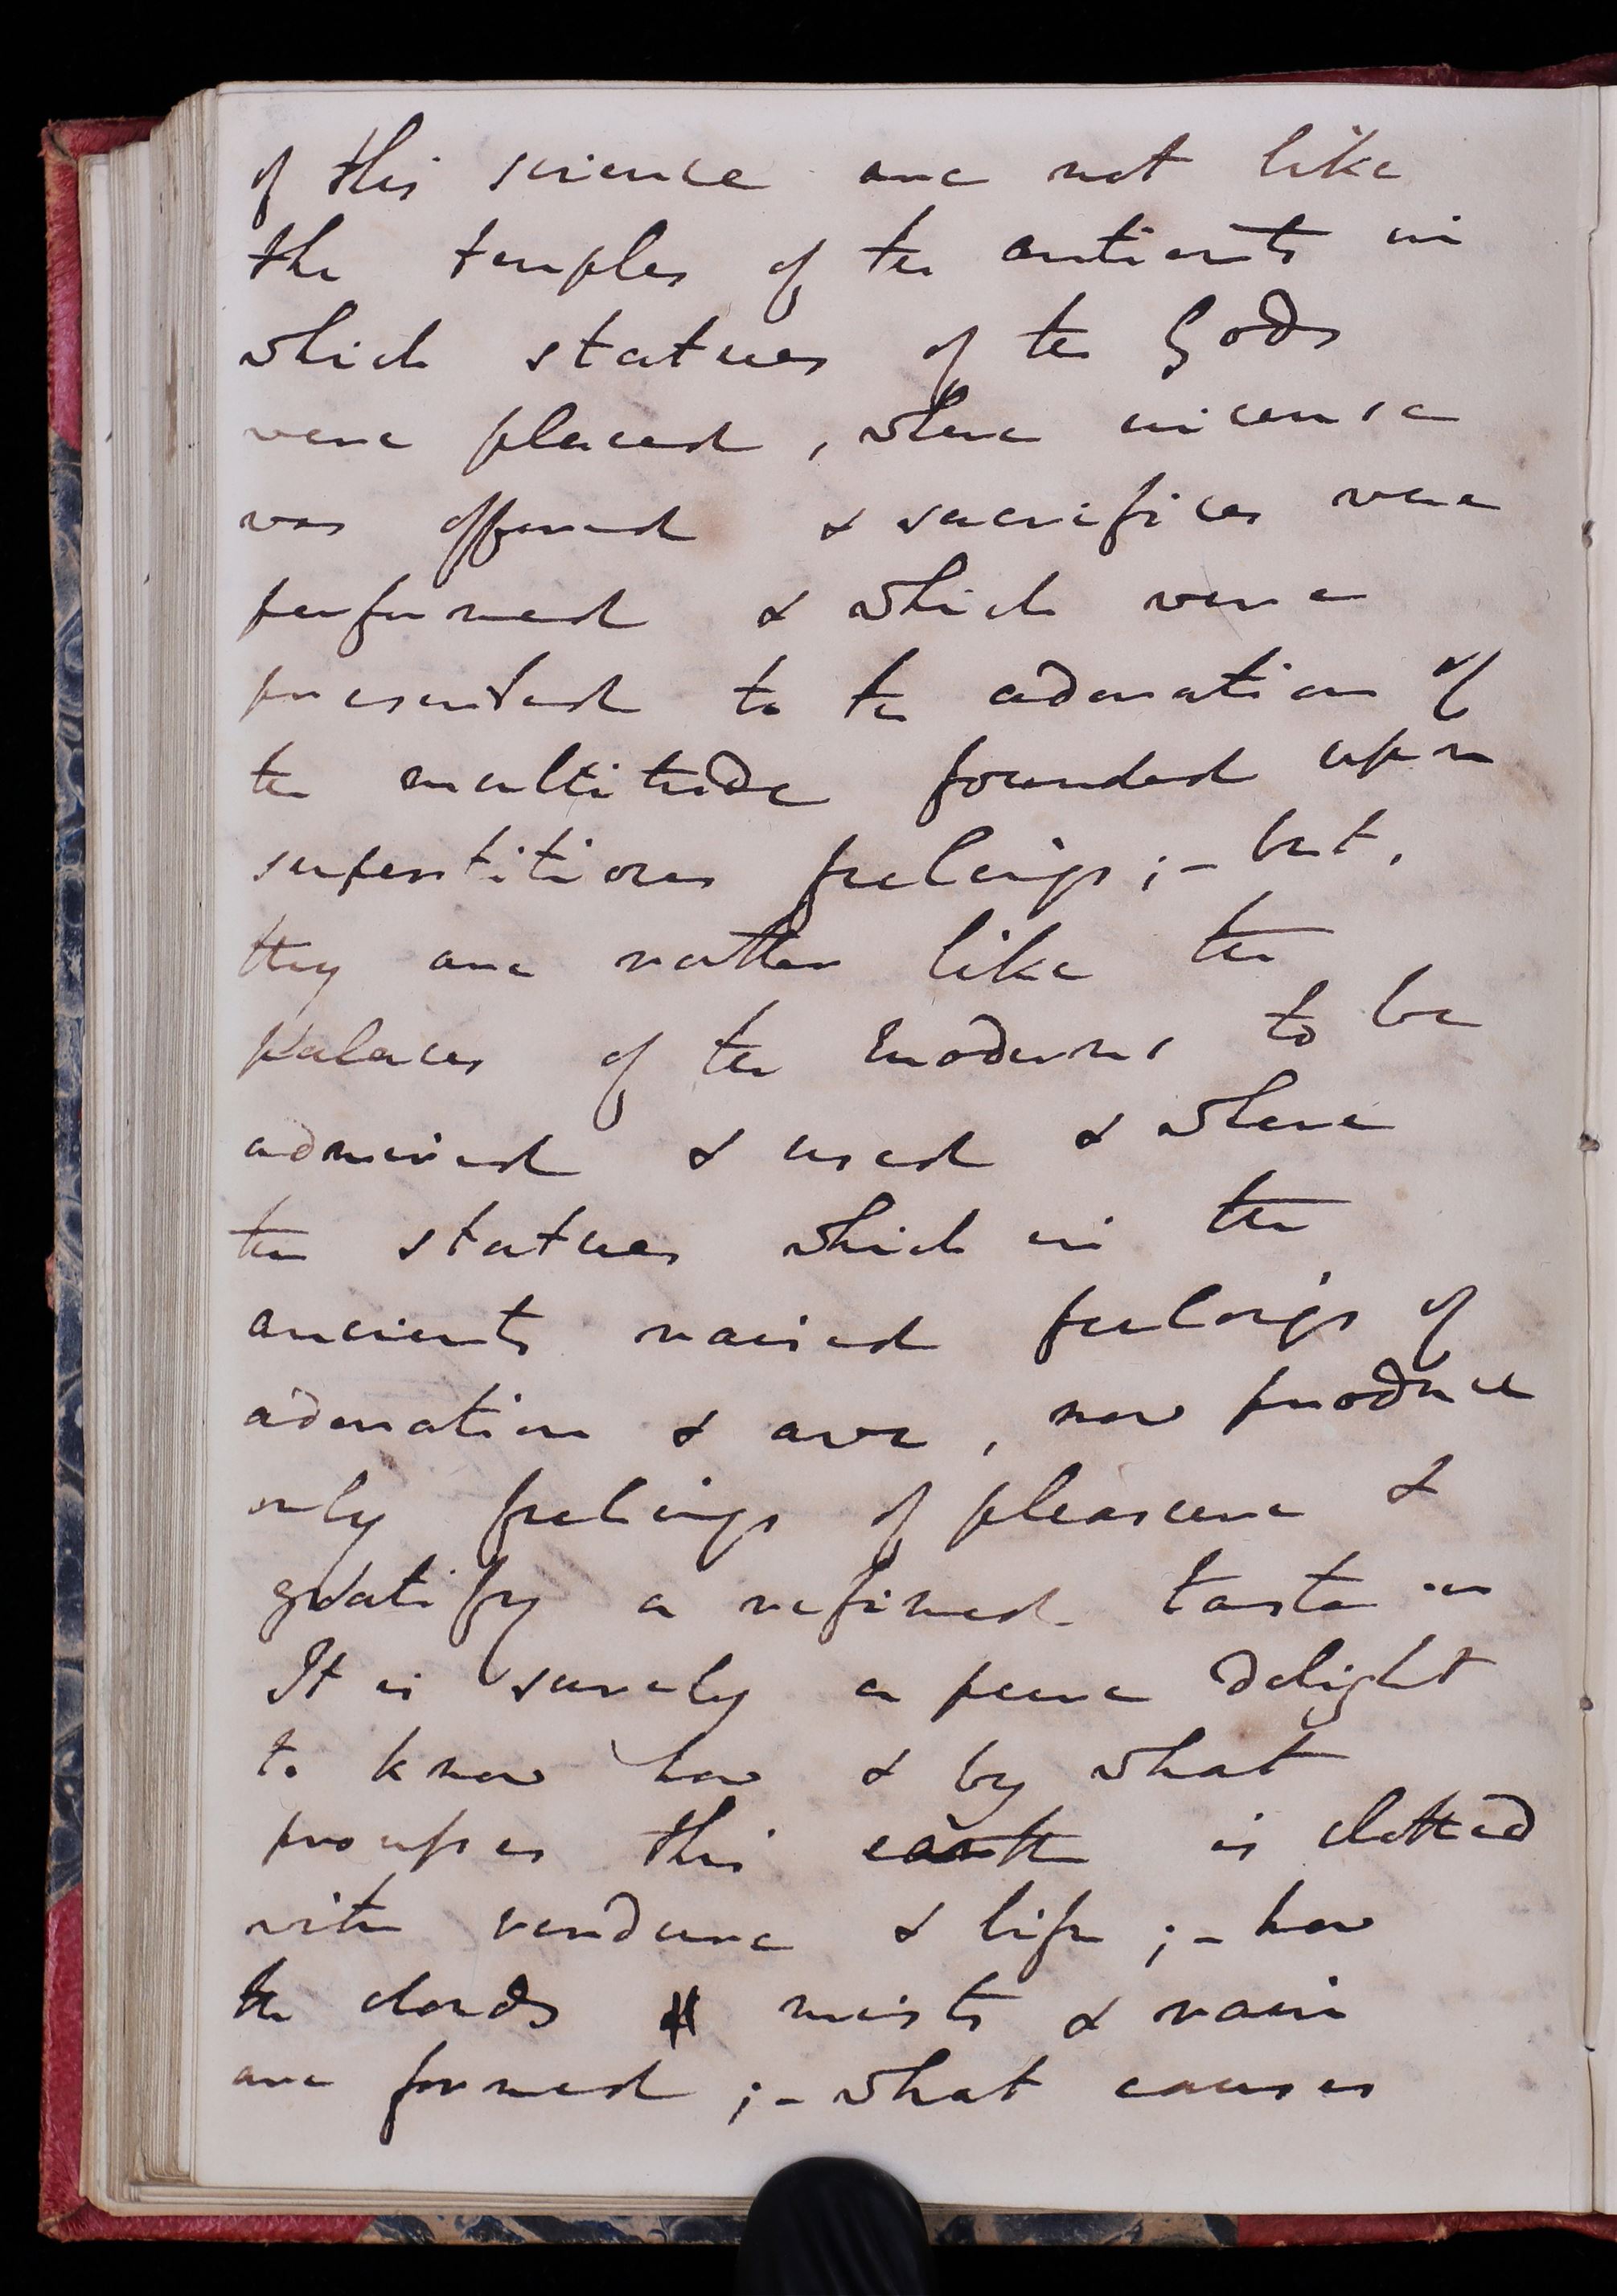 of this science are not like
the temples of the antients in
which statues of the Gods
were placed, where incense
was offered & sacrifices were
performed & which were
presented to the adoration of
the multitude founded upon
superstitious feelings; - but,
they are rather like the
palaces of the moderns to be
admired & used & where
the statues which in the
ancients raised feelings of
adoration & awe, now produce
only feelings of pleasure &
gratify a refined taste -
It is surely a pure delight
to know how & by what
processes this earth is clothed
with verdure & life; - how
the clouds mists & rain
are formed; - what causes